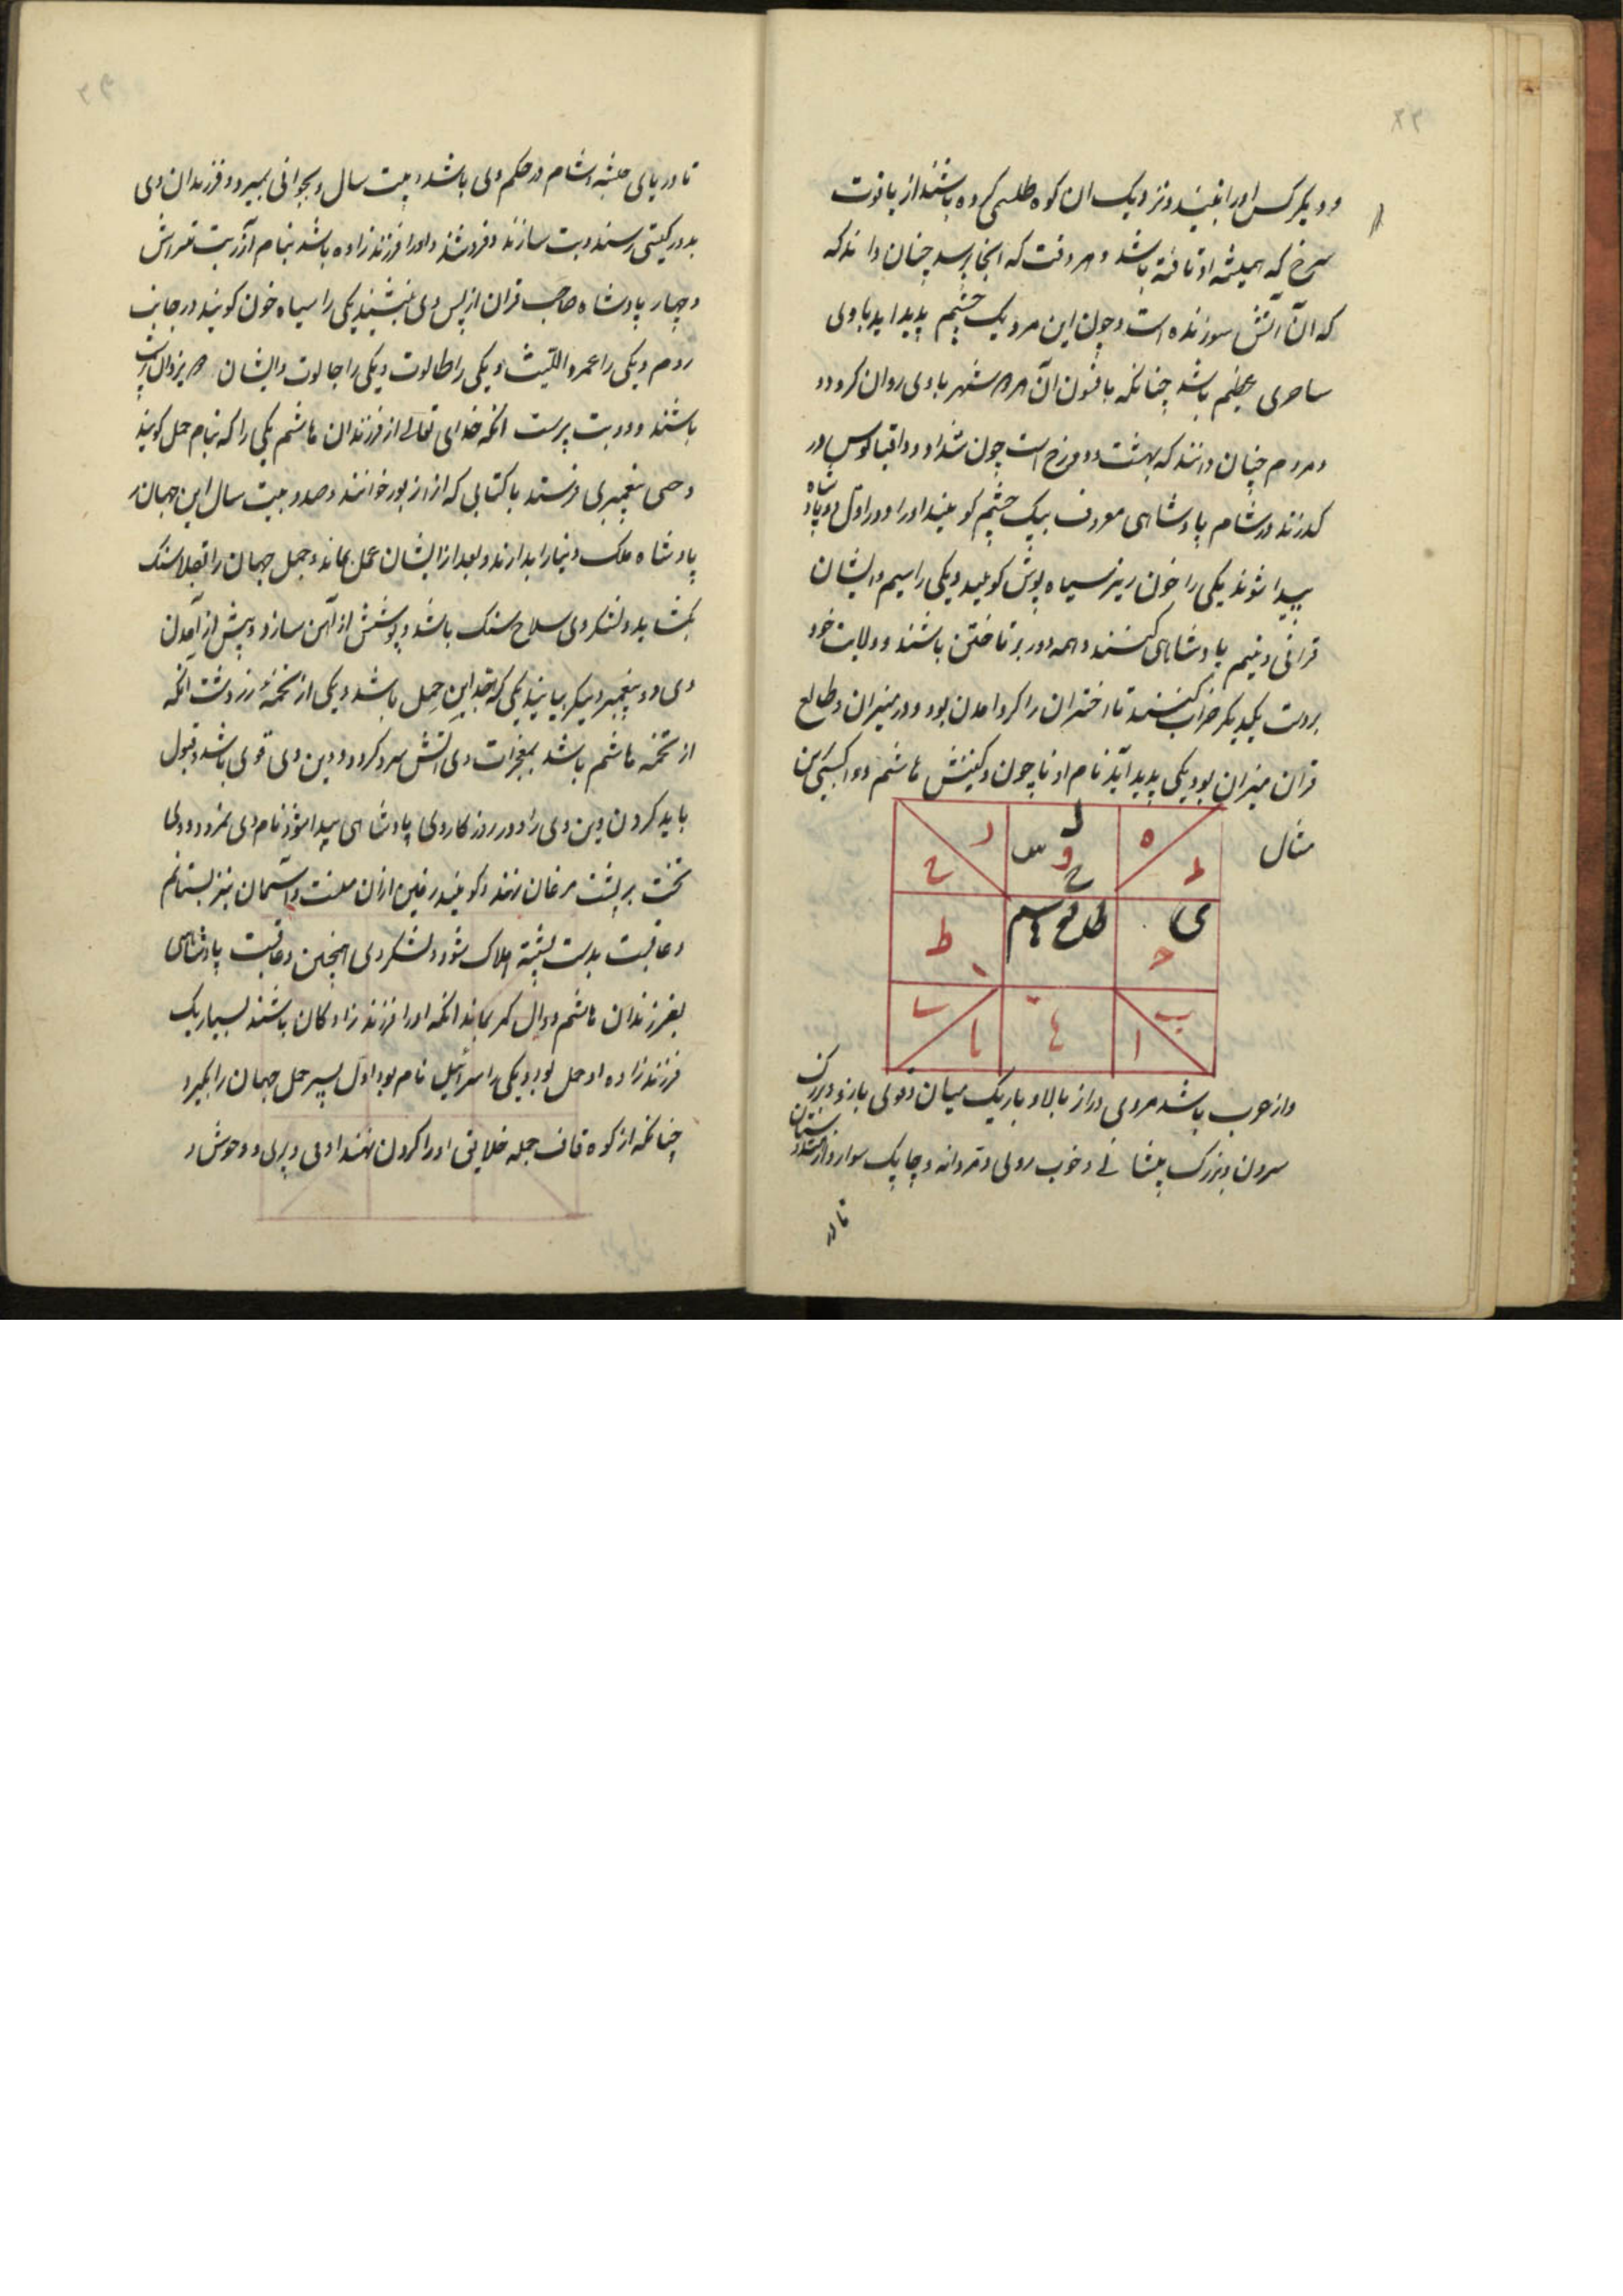 ۲۲
و دیکر کس او را نبیند و نزدیک ان کوه طلسمی کرده باشند از یاقوت
سرخ که همیشه او تافته باشد و هر وقت که انجا برسد چنان داند که
که آن آتش سوزنده است و چون این مرد یک چشم پدید اید با وی
ساحری عظیم باشد چنانکه بافسون آن هر شهر با وی روان کردد و
و مردم چنان دانند که بهشت و دوزخ است چون شداد و دقیانوس در
کذرند در شام پادشاهی معروف بیک چشم کویند او را و در اول دو پادشاه
پیدا شوند یکی را خون ریز سیاه پوش کویند و یکی را سیم و ایشان
قرانی و نیم پادشاهی کنند و همه در بر تاختن باشند و ولایت خود
بر دست یکدیکر خراب کنند تا اختران را کرد امدن بود در میزان و طالع
قران میزان بود یکی پدید آید نام او ناچون و کنیتش هاشم
مثال
ه
ط
ل
و
س
ح
ر
ح
ی
طالع
ط
ب
ا
ها
یا
و از عرب باشد مردی دراز بالا و باریک میان و قوی بازو و بزرک
سرون و بزرک پیشانی و خوب روی و مردانه و چابک سوار و از
تا در
تا دریای حبشه و شام در حکم وی باشد و بیست سال و بجوانی بمیرد و فرزندان وی
بدور کیتی رسند و بت سازند و فروشند و او را فرزند زاده باشد بنام آزر بت فروش
و چهار پادشاه صاحب قران از پس وی بنشیند یکی را سیاه خون کویند در جانب
روم و یکی را عمرو اللیث و یکی را طالوت و یکی را جالوت و ایشان یزدان پرست
باشند و دو بت پرست انکه خدای تعالی از فرزندان هاشم یکی را که بنام حمل کویند
وحی پیغمبری فرستد با کتابی که از زبور خوانند و صد و بیست سال این جهان
پادشاه ملک دنیا را بدارند و بعد از ایشان حمل بماند و حمل جهان را بفلاسنک
بکشاید و لشکر وی سلاح سنک باشد و پوشش از آهن سازد و پیش از آمدن
وی دو پیغمبر دیکر بیایند یکی که جد این حمل باشد و یکی از تخمه زردشت انکه
از تخمه هاشم باشد بمعجزات وی آتش سرد کردد و دین وی قوی باشد و قبول
باید کردن دین وی را و در روزکار وی پادشاهی پیدا شود نام وی نمرود و وی
تخت بر پشت مرغان نهد و کویند زمین از ان منست و آسمان نیز بستانم
و عاقبت بدست پشه هلاک شود و لشکر وی همچنین و عاقبت پادشاهی
بفرزندان هاشم و وال کمر بماند انکه او را فرزند زادکان باشند بسیار یک
فرزند زاده او حمل بود و یکی را اسرائیل نام بود اول پسر حمل جهان را بکیرد
چنانکه از کوه قاف جمله خلایق او را کردن نهند ادمی و پری و وحوش و